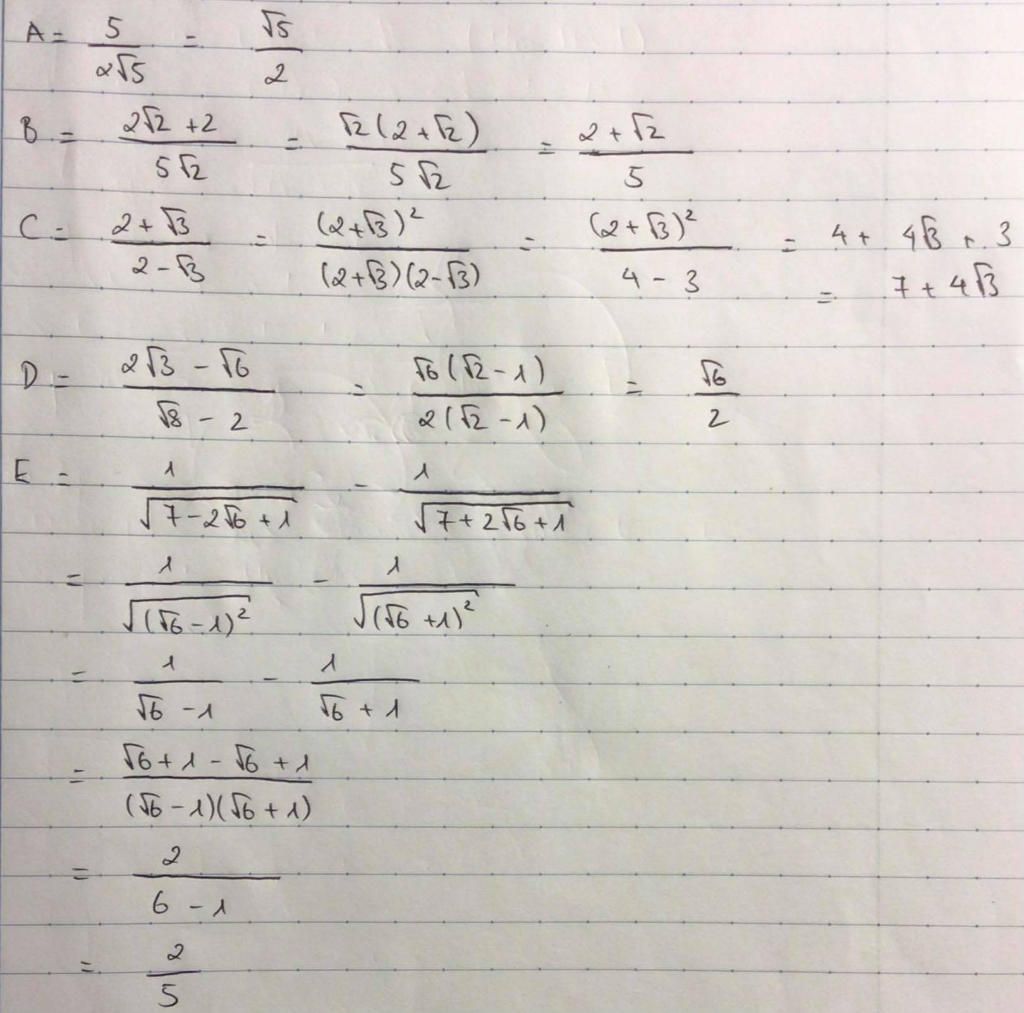 A = 5/(2√5) = √5/2
B = (2√2 + 2)/(5√2) = √2(2 + √2)/(5√2) = (2 + √2)/5
C = (2 + √3)/(2 - √3) = (2 + √3)²/((2 + √3)(2 - √3)) = (2 + √3)²/(4 - 3) = 4 + 4√3 + 3
= 7 + 4√3
D = (2√3 - √6)/(√8 - 2) = √6(√2 - 1)/(2(√2 - 1)) = √6/2
E = 1/√(7 - 2√6 + 1) - 1/√(7 + 2√6 + 1)
= 1/√((√6 - 1)²) - 1/√((√6 + 1)²)
= 1/(√6 - 1) - 1/(√6 + 1)
= (√6 + 1 - √6 + 1)/((√6 - 1)(√6 + 1))
= 2/(6 - 1)
= 2/5